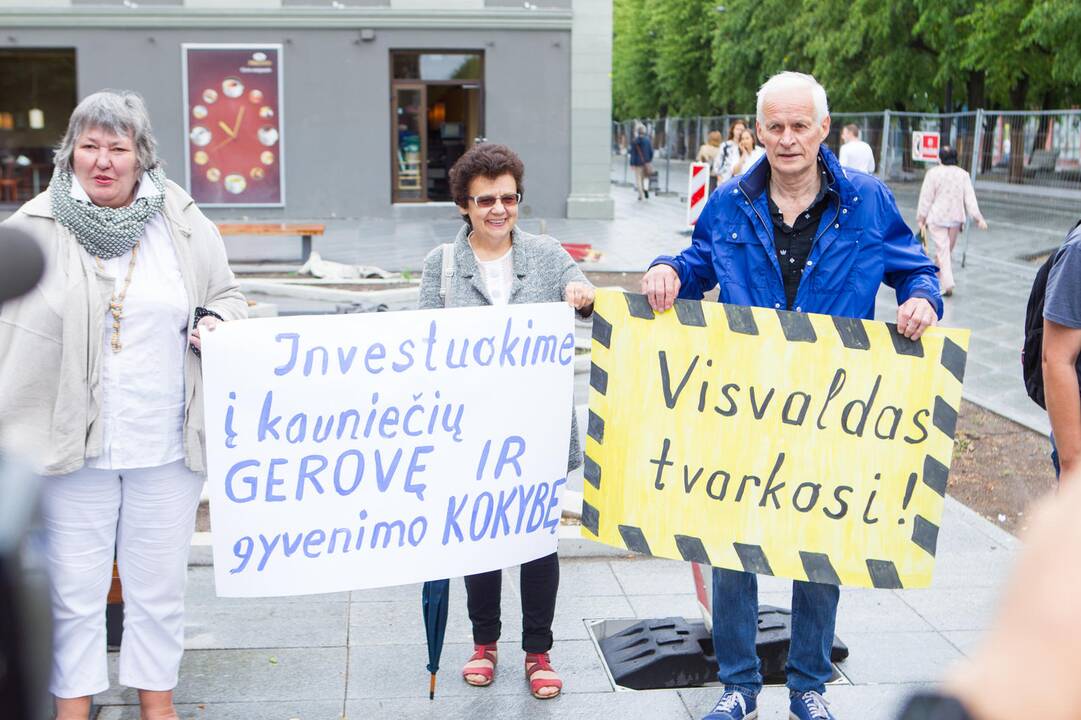 Investuokime
į kauniečių
GEROVĘ IR
gyvenimo KOKYBĘ
Visvaldas
tvarkosi!